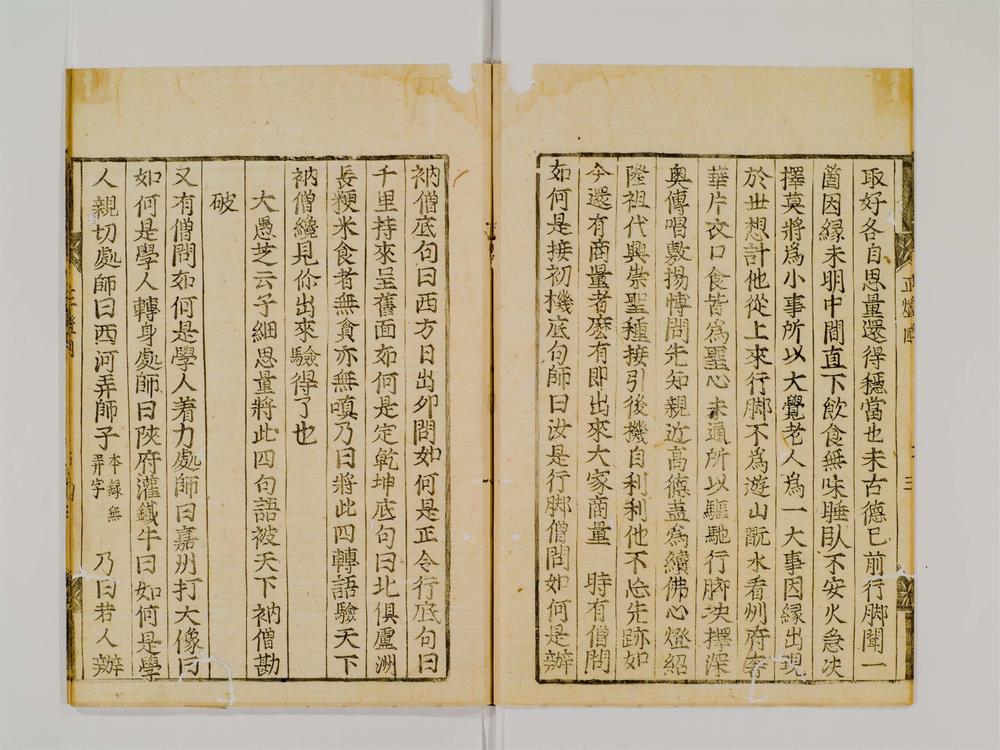 取好各自思量還得穩當也未古德已前行脚聞一
箇因緣未明中間直下飮食無味睡臥不安火急决
擇莫將爲小事所以大覺老人爲一大事因緣出現
於世想計他從上來行脚不爲遊山翫水看州府奢
華片衣口食皆爲聖心未通所以驅馳行脚决擇深
奧傳唱敷揚愽問先知親近高德盖爲續佛心燈紹
隆祖代興崇聖種接引後機自利利他不忘先跡如
今還有商量者麽有即出來大家商量 時有僧問
如何是接初機底句師曰汝是行脚僧問如何是辦
衲僧底句曰西方日出夘問如何是正令行底句曰
千里持來呈舊面如何是定乾坤底句曰北俱盧洲
長粳米食者無貪亦無嗔乃曰將此四轉語驗天下
衲僧纔見你出來驗得了也
大愚芝云子細思量將此四句語被天下衲僧勘
破
又有僧問如何是學人着力處師曰嘉州打大像曰
如何是學人轉身處師曰陝府灌鐵牛曰如何是學
人親切處師曰西河弄師子 本錄無弄字 乃曰若人辦